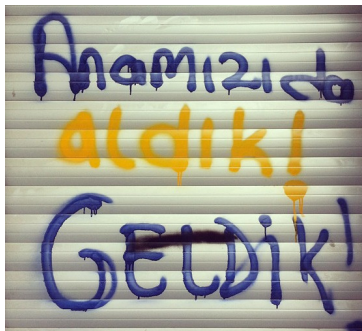 Anamızıda
aldık!
GELDİK!